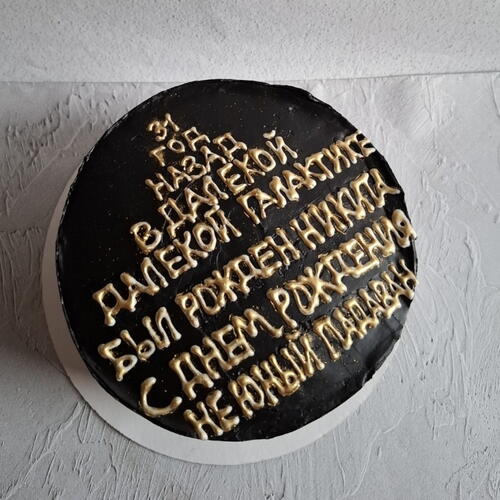 31
ГОД
НАЗАД
В ДАЛЕКОЙ
ДАЛЕКОЙ ГАЛАКТИКЕ
БЫЛ РОЖДЕН НИКИТА
С ДНЕМ РОЖДЕНИЯ
НЕ ЮНЫЙ ПАДАВАН